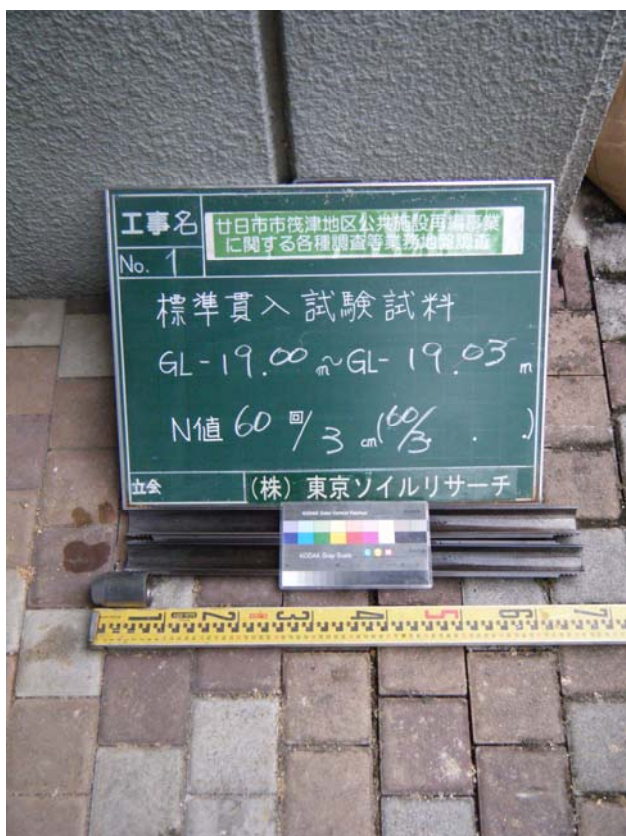 工事名
廿日市市筏津地区公共施設再編事業
に関する各種調査等業務地盤調査
No. 1
標準貫入試験試料
GL-19.00m~GL-19.03m
N値 60回/3cm(60/3. . .)
立会
(株)東京ソイルリサーチ
KODAK Color Control Patches
KODAK Gray Scale
1 2 3 4 5 6 7